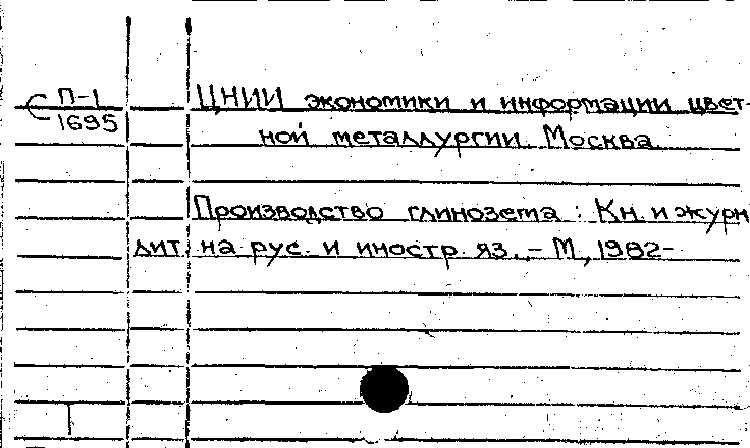 С П-1
1695
ЦНИИ экономики и информации цвет-
ной металлургии. Москва.
Производство глинозема : Кн. и журн
лит. на рус. и иностр. яз. - М., 1982-